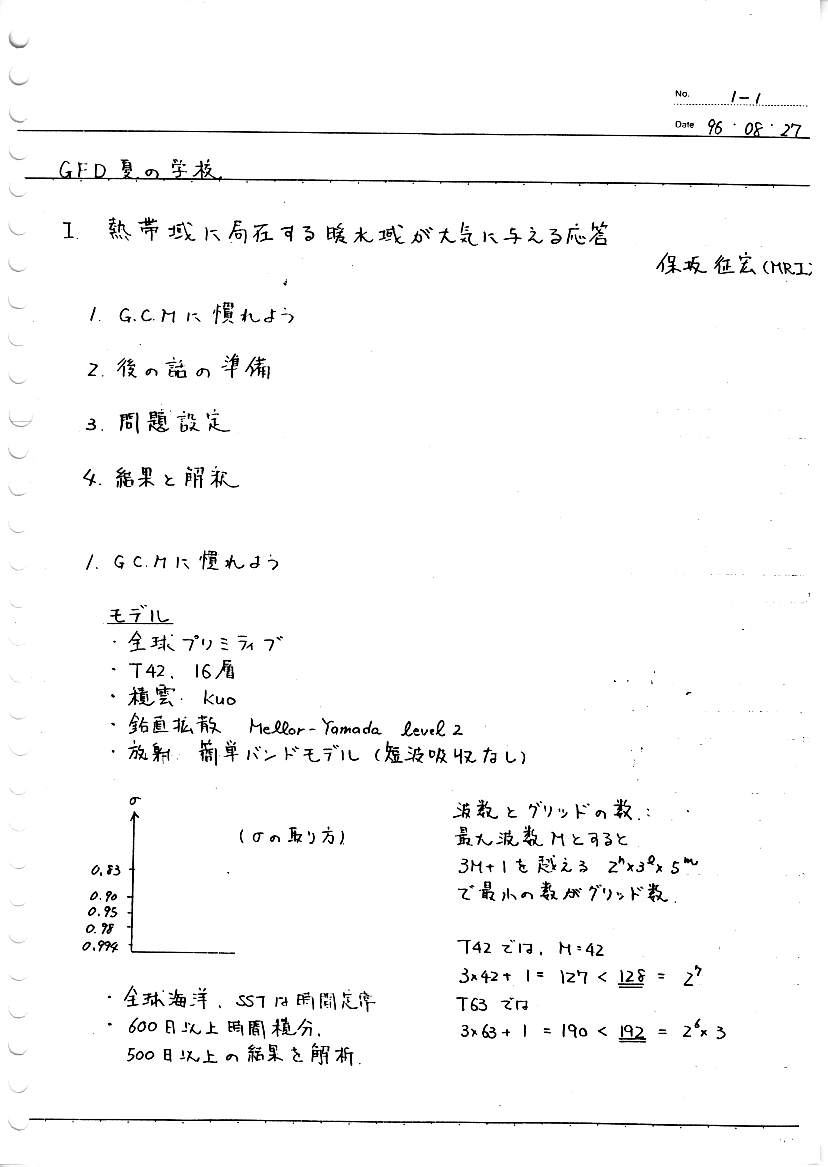 No. 1-1
Date 96・08・27
GFD 夏の学校
I. 熱帯域に局在する暖水域が大気に与える応答
保坂 征宏 (MRI)
1. G.C.M に慣れよう
2. 後の話の準備
3. 問題設定
4. 結果と解釈
1. G C.M に慣れよう
モデル
・全球プリミティブ
・T42. 16層
・積雲. Kuo
・鉛直拡散 Mellor-Yamada level 2
・放射 簡単バンドモデル (短波吸収なし)
σ
(σの取り方)
0.83
0.90
0.95
0.98
0.994
・全球海洋. SST は時間定常
・600日以上時間積分.
500日以上の結果を解析.
波数とグリッドの数.:
最大波数 M とすると
3M+1 を越える 2ⁿ×3ˡ×5ᵐ
で最小の数がグリッド数.
T42 では, M=42
3×42+1 = 127 < 128 = 2⁷
T63 では
3×63+1 = 190 < 192 = 2⁶×3